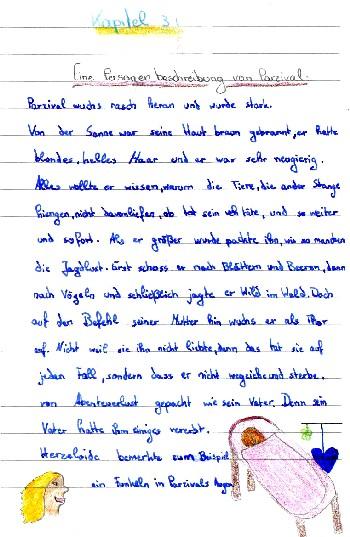 Kapitel 3:
Eine Personenbeschreibung von Parzival.
Parzival wuchs rasch heran und wurde stark.
Von der Sonne war seine Haut braun gebrannt, er hatte
blondes, helles Haar und er war sehr neugierig.
Alles wollte er wissen, warum die Tiere, die an der Stange
hiengen, nicht davonliefen, ob tot sein weh täte, und so weiter
und sofort. Als er größer wurde packte ihn, wie so manchen
die Jagdlust. Erst schoss er nach Blättern und Beeren, dann
nach Vögeln und schließlich jagte er Wild im Wald. Doch
auf den Befehl seiner Mutter hin wuchs er als Thor
auf. Nicht weil sie ihn nicht liebte, denn das tat sie auf
jeden Fall, sondern dass er nicht wegziehe und sterbe.
von Abenteuerlust gepackt wie sein Vater. Denn sein
Vater hatte ihm einiges vererbt.
Herzeloide bemerkte zum Beispiel
ein Funkeln in Parzivals Augen,